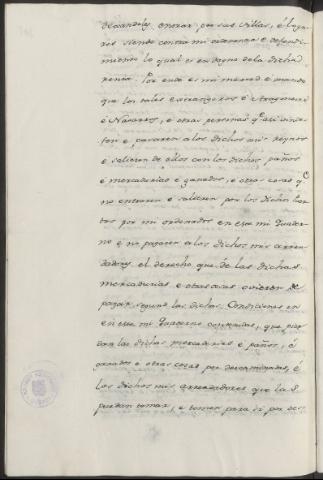 dexandoles entrar por sus Villas, é Luga-
res siendo contra mi ordenanza e defendi-
miento lo qual es en dapno de la dicha
renta. Por ende es mi merced e mando
que los tales extrangeros é Aragoneses
é Navarros, é otras personas q.e ali vinie-
ren e pasaren a los dichos mis reynos
e salieren de ellos con los dichos paños
é mercadurias é ganados, e otras cosas q.e
no entraren e salieren por los dichos luga-
res por mi ordenados en este mi Quader-
no e no pagaren a los dichos mis arren-
dadores el derecho que de las dichas
mercadurias e otras cosas ovieren de
pagar segund las dichas Condiciones en
en este mi Quaderno contenidas, que pier-
dan las dichas mercadurias e paños, é
ganados e otras cosas por descaminadas, é
los dichos mis arrendadores que las
puedan tomar, e tomen para si por des-